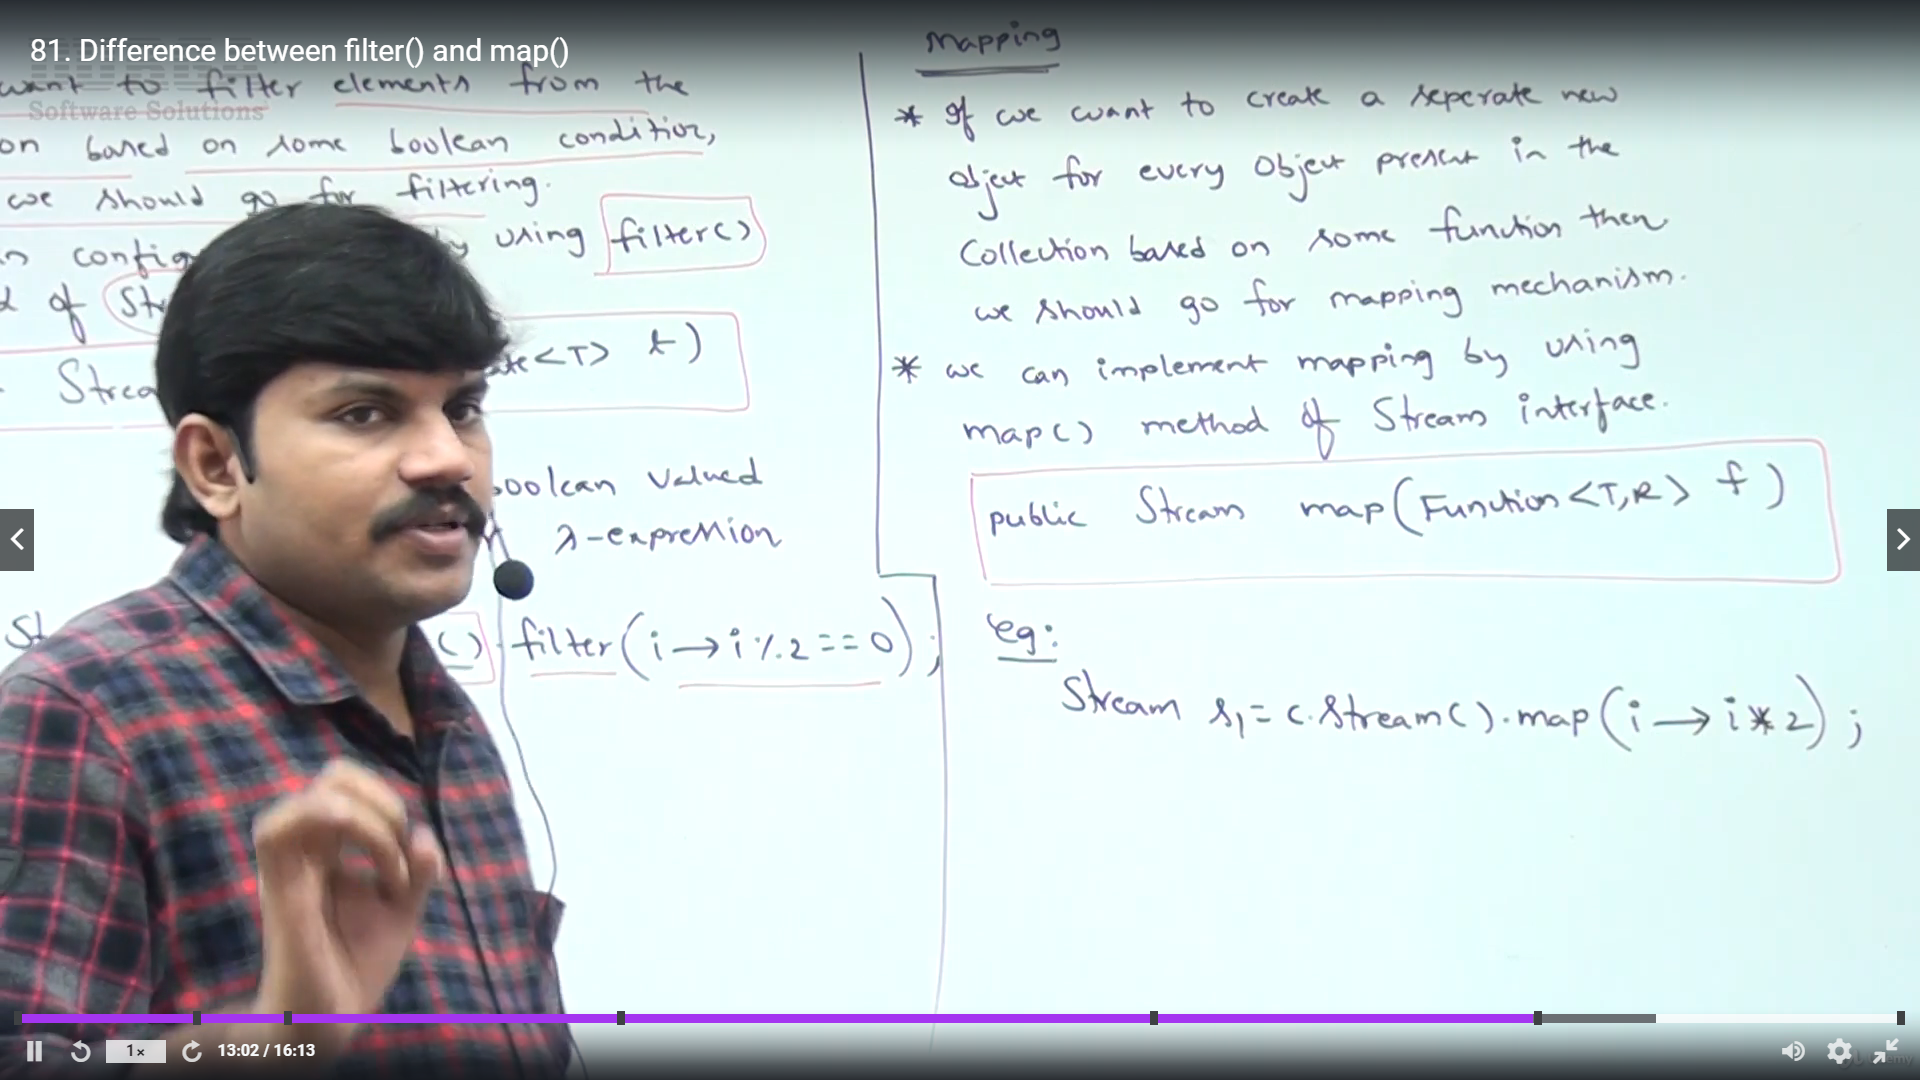 81. Difference between filter() and map()
want to filter elements from the
Software Solutions
on based on some boolean condition,
we should go for filtering.
n config by using filter()
of St
Strea <T> t)
boolean valued
λ-expression
St () . filter(i→i%2==0);
Mapping
* If we want to create a seperate new
object for every object present in the
Collection based on some function then
we should go for mapping mechanism.
* we can implement mapping by using
map() method of Stream interface.
public Stream map(Function<T,R> f)
eg:
Stream s1=c.stream().map(i→i*2);
1×
13:02 / 16:13